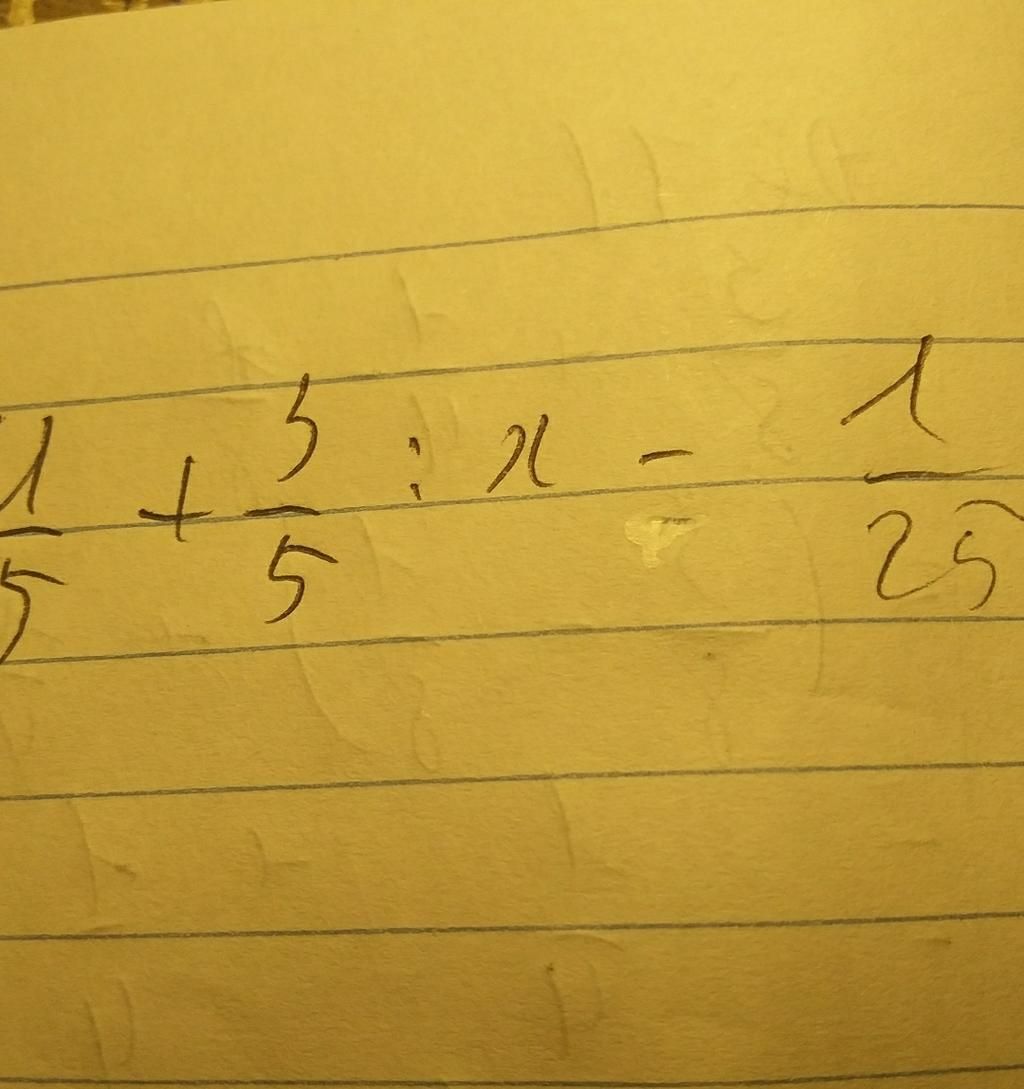 1/5 + 3/5 : x - 1/25